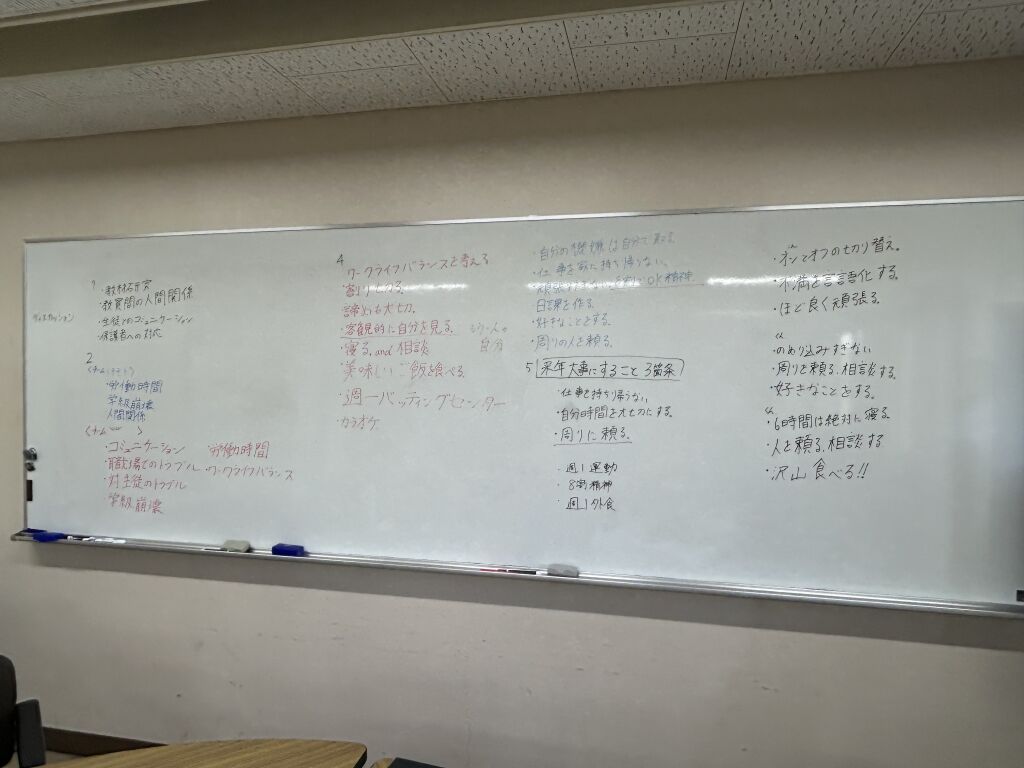 1.
・教材研究
・教員間の人間関係
・生徒とのコミュニケーション
・保護者への対応
ディスカッション
2.
・労働時間
学級崩壊
人間関係
・コミュニケーション ・労働時間
・職場でのトラブル ・ワークライフバランス
・対生徒のトラブル
・学級崩壊
4
ワークライフバランスを考える
・割り切る。
諦めも大切。
・客観的に自分を見る。 もう一人の
自分
・寝る。and 相談
・美味しいご飯を食べる。
・週一バッティングセンター
・カラオケ
・自分の機嫌は自分で取る
・仕事を家に持ち帰らない。
OK精神
日課を作る。
・好きなことをする。
・周りの人を頼る。
5 来年大事にすること 3箇条
・仕事を持ち帰らない。
・自分時間を大切にする。
・周りに頼る。
・週1運動
・8割精神
・週1外食
・オンとオフの切り替え。
・不満を言語化する。
・ほど良く頑張る。
・のめり込みすぎない
・周りを頼る。相談する。
・好きなことをする。
・6時間は絶対に寝る。
・人を頼る。相談する
・沢山食べる!!